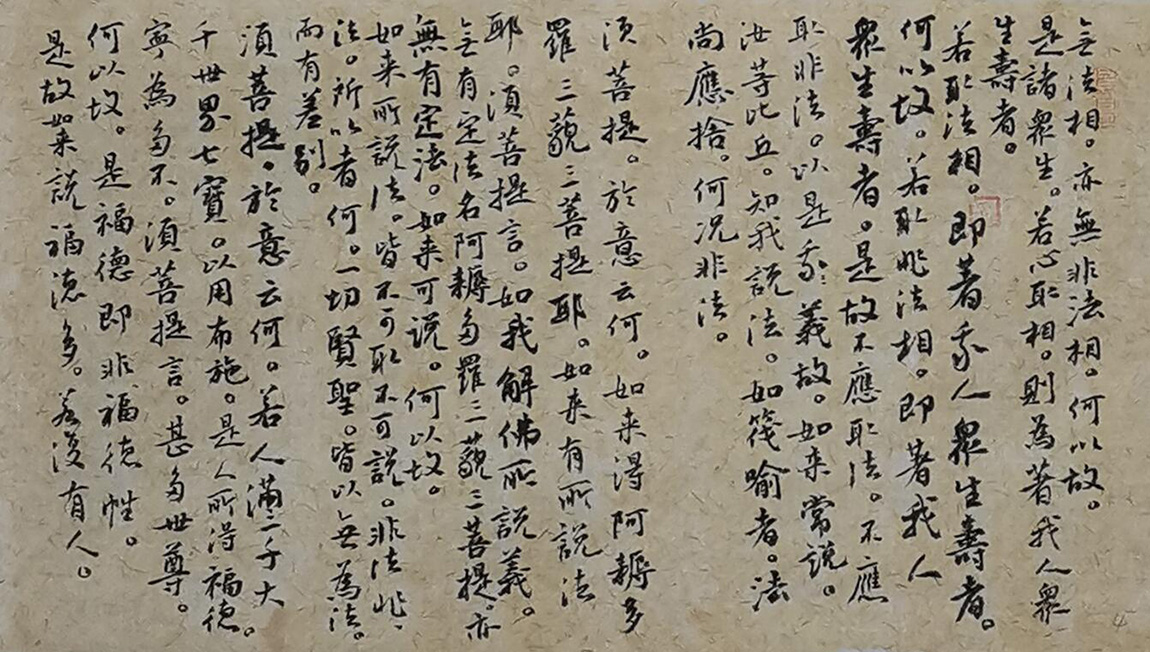 无法相。亦無非法相。何以故。
是諸衆生。若心取相。則為著我人衆
生壽者。
若取法相。即著我人衆生壽者。
何以故。若取非法相。即著我人
衆生壽者。是故不應取法。不應
取非法。以是我義故。如来常説。
汝等比丘。知我説法。如筏喻者。法
尚應捨。何况非法。
須菩提。於意云何。如来得阿耨多
羅三藐三菩提耶。如来有所説法
耶。須菩提言。如我解佛所説義。
无有定法名阿耨多羅三藐三菩提。亦
無有定法。如来可説。何以故。
如来所説法。皆不可取不可説。非法非
法。所以者何。一切賢聖。皆以无為法。
而有差别。
須菩提。於意云何。若人滿三千大
千世界七寶。以用布施。是人所得福德。
寧為多不。須菩提言。甚多世尊。
何以故。是福德即非福德性。
是故如来説福德多。若復有人。